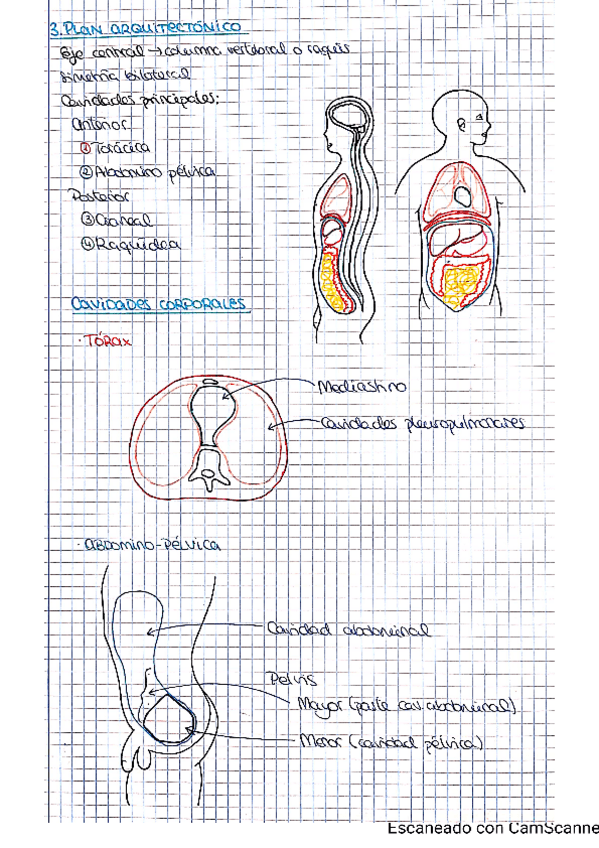 3. PLAN ARQUITECTÓNICO
Eje central → columna vertebral o raquis
Simetría bilateral
Cavidades principales:
Anterior
① Torácica
② Abdomino pélvica
Posterior
③ Craneal
④ Raquídea
CAVIDADES CORPORALES
· TÓRAX
Mediastino
Cavidades pleuropulmonares
· ABDOMINO-PÉLVICA
Cavidad abdominal
Pelvis
Mayor (parte cav. abdominal)
Menor (cavidad pélvica)
Escaneado con CamScanne